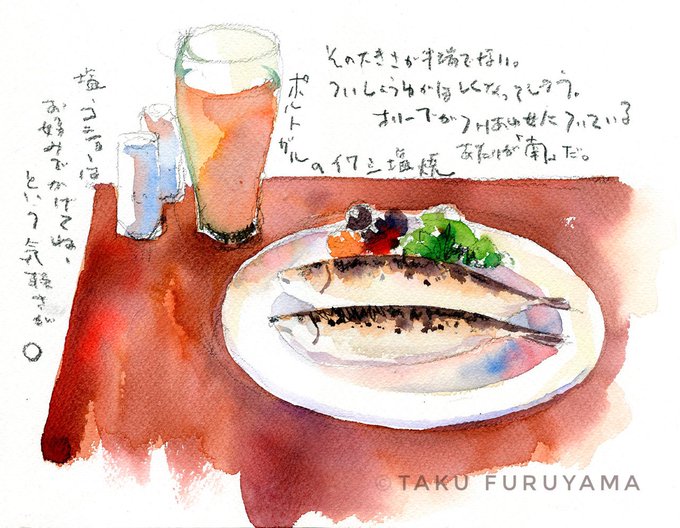 その大きさが半端でない。
ついしょうゆがほしくなってしまう。
オリーブがつけあわせについている
あたりが「南」だ。
ポルトガル
のイワシ塩焼
塩コショーは
お好みでかけてね、
という気軽さが
○
© TAKU FURUYAMA